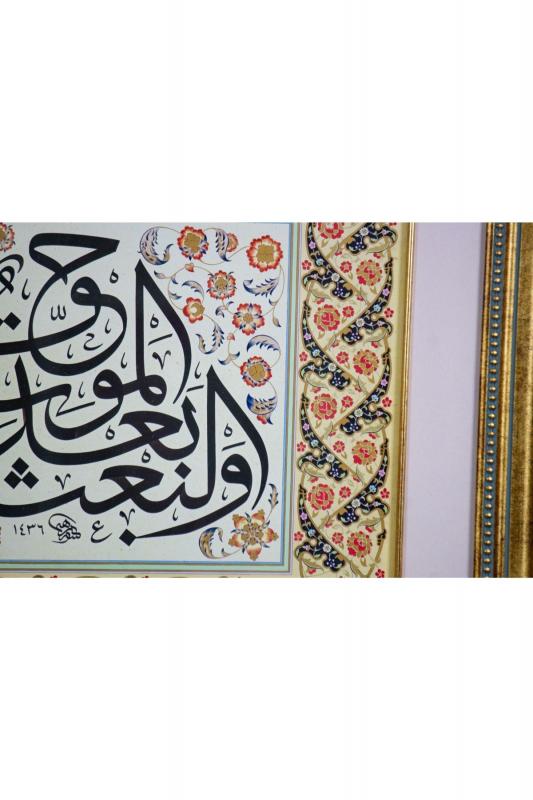 والبعث
بعد
الموت
حق
ع
١٤٣٦